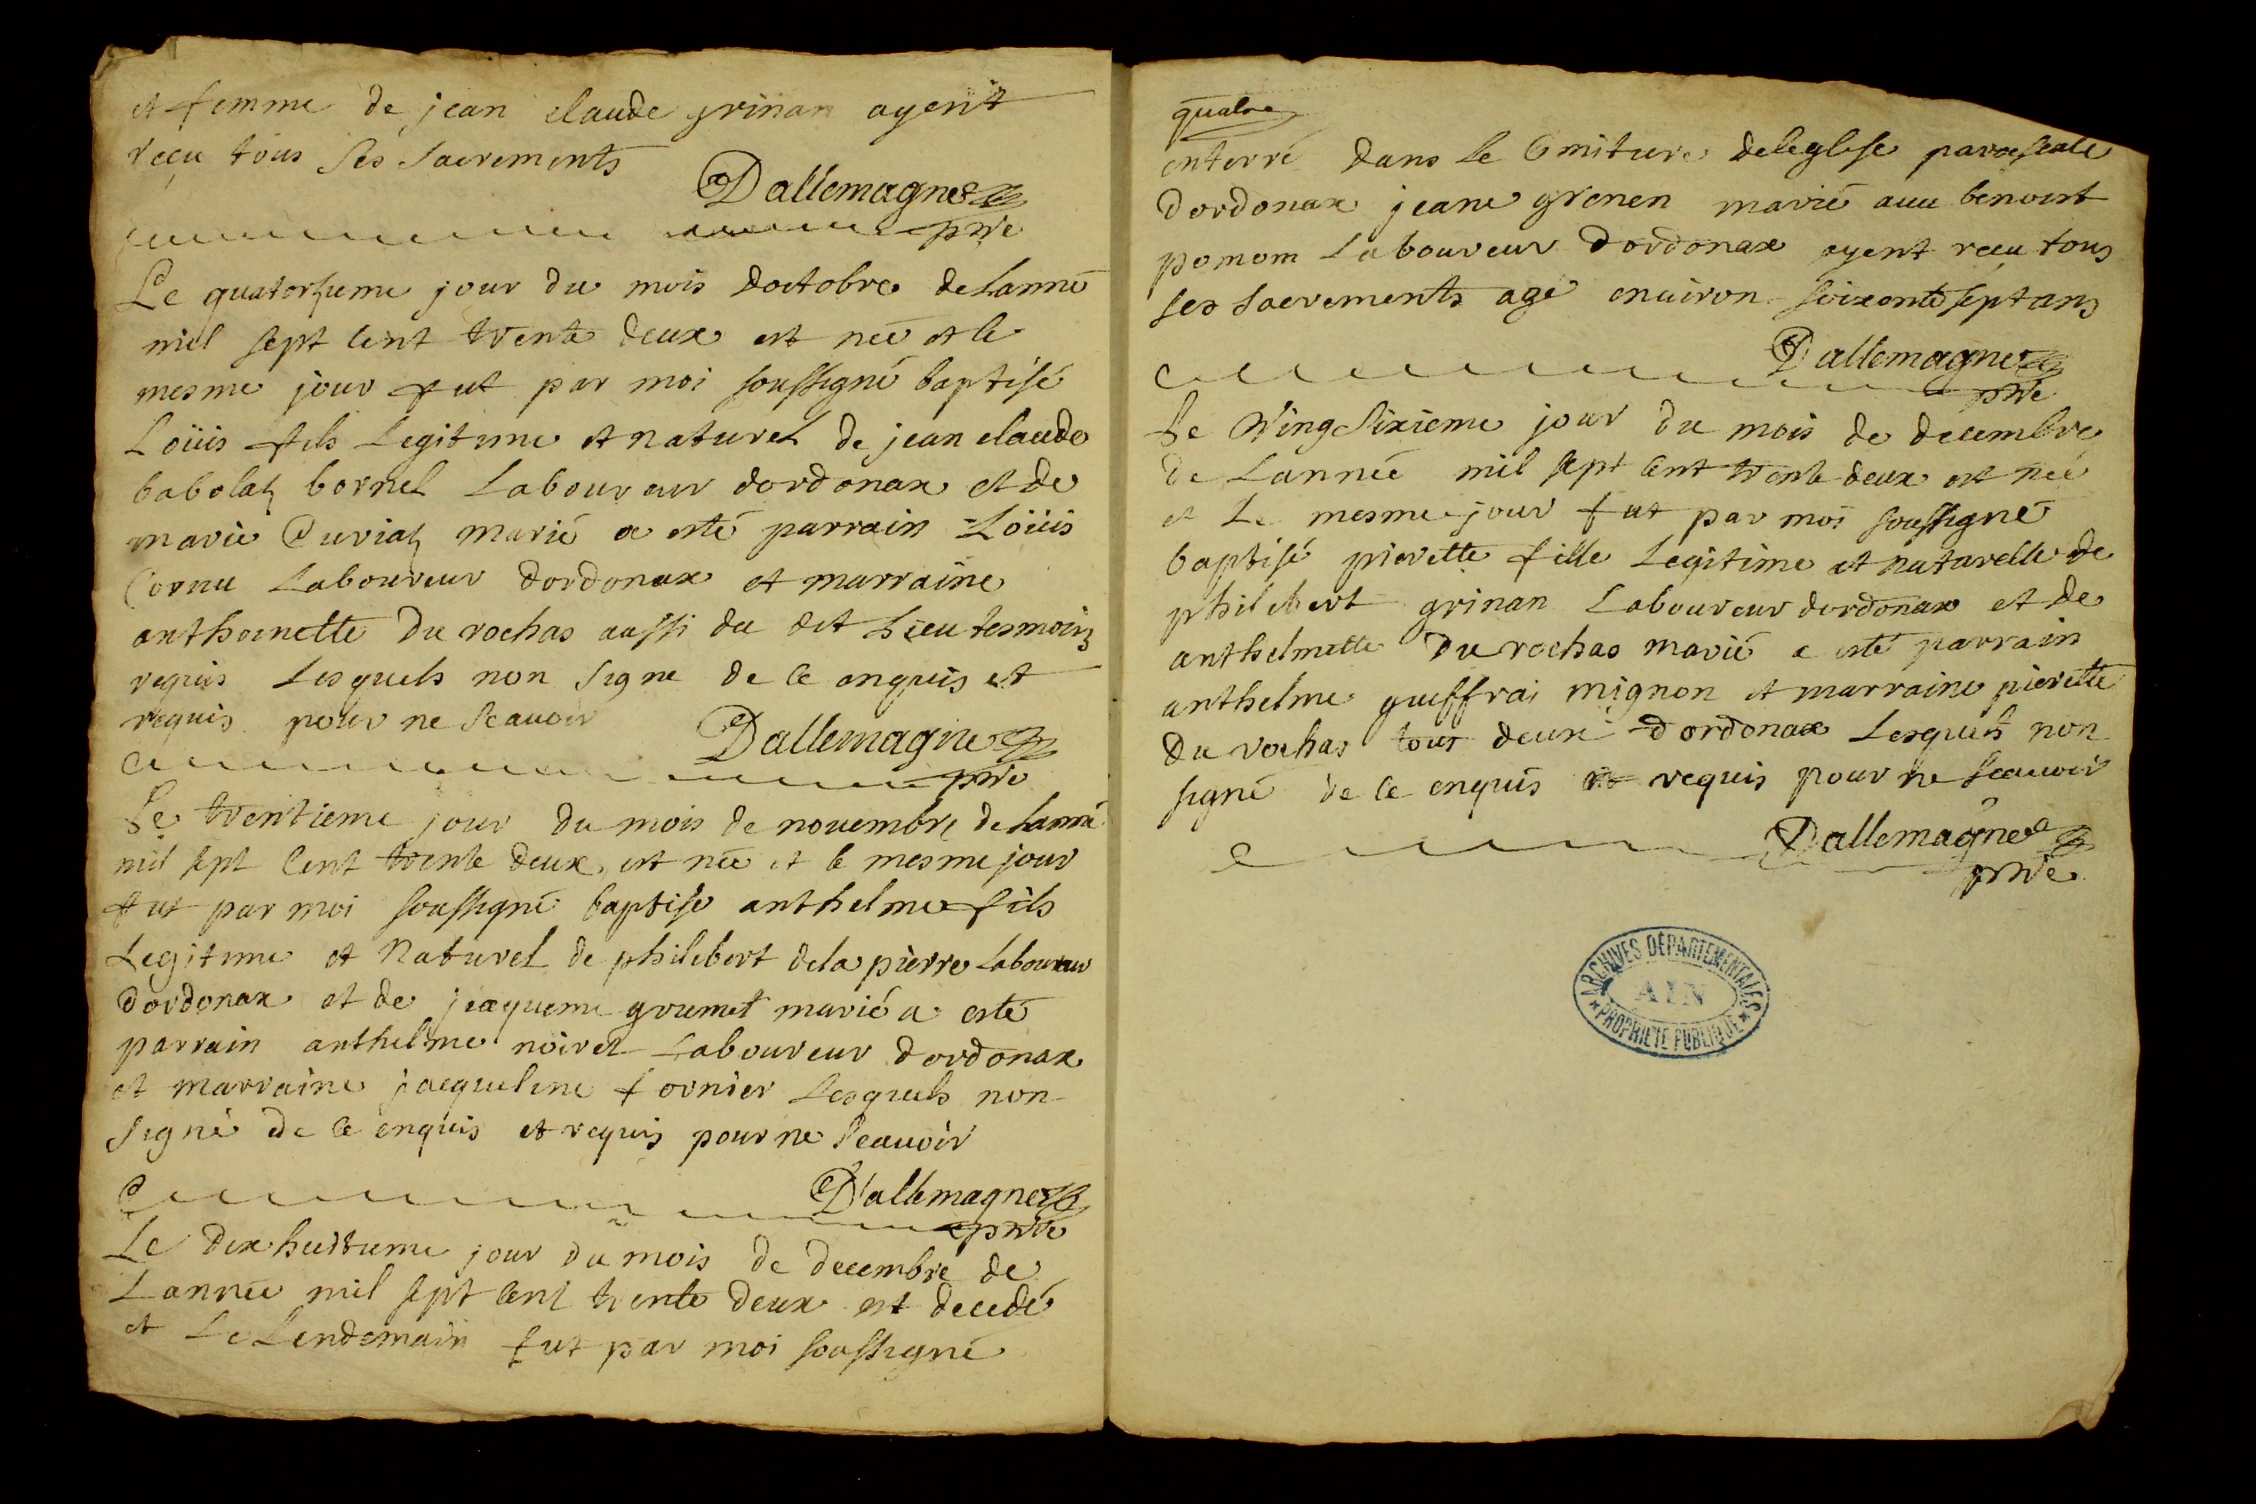 et femme de jean claude grinan ayent
reçu tous ses sacrements
Dallemagne
ptre
Le quatorsieme jour du mois doctobre de lanné
mil sept cent trente deux est neé et le
mesme jour fut par moi soussigné baptisé
Loüis fils legitime et naturel de jean claude
babolat bornel Laboureur dordonax et de
marie Curiat marié a esté parrain Loüis
Cornu Laboureur dordonax et marraine
anthoinette Du rochas aussi du dit Lieu tesmoins
requis Lesquels non signe de ce enquis et
requis pour ne scauoir
Dallemagne
ptre
Le trentieme jour du mois de nouembre de lanné
mil sept cent trente deux est neé et le mesme jour
fut par moi soussigné baptise anthelme fils
Legitime et Naturel de philibert dela pierre Laboureur
dordonax et de jacqueme grumet marié a esté
parrain anthelme noiret Laboureur dordonax
et marraine jacqueline fornier Lesquels non
signé de ce enquis et requis pour ne scauoir
Dallemagne
ptre
Le dix huitieme jour du mois de decembre de
Lanneé mil sept cent trente deux est decedé
et Le Lendemain fut par moi soussigné
quatre
enterré dans le Cmiture deleglise paroiseale
dordonax jeane grenen marié auu benoist
pomom Laboureur dordonax ayent recu tous
ses sacrements agé enuiron soixente sept ans
Dallemagne
ptre
Le Ving sixieme jour du mois de decembre
de Lanneé mil sept cent trente deux est neé
et Le mesme jour fut par moi soussigné
baptisé pierette fille Legitime et naturelle de
philibert grinan Laboureur dordonax et de
anthelmette Du rochas marié a esté parrain
anthelme gueffrai mignon et marraine pierette
Du rochas tous deux dordonax Lesquels non
signé de ce enquis et requis pour ne scauoir
Dallemagne
ptre
ARCHIVES DÉPARTEMENTALES
AIN
PROPRIÉTÉ PUBLIQUE